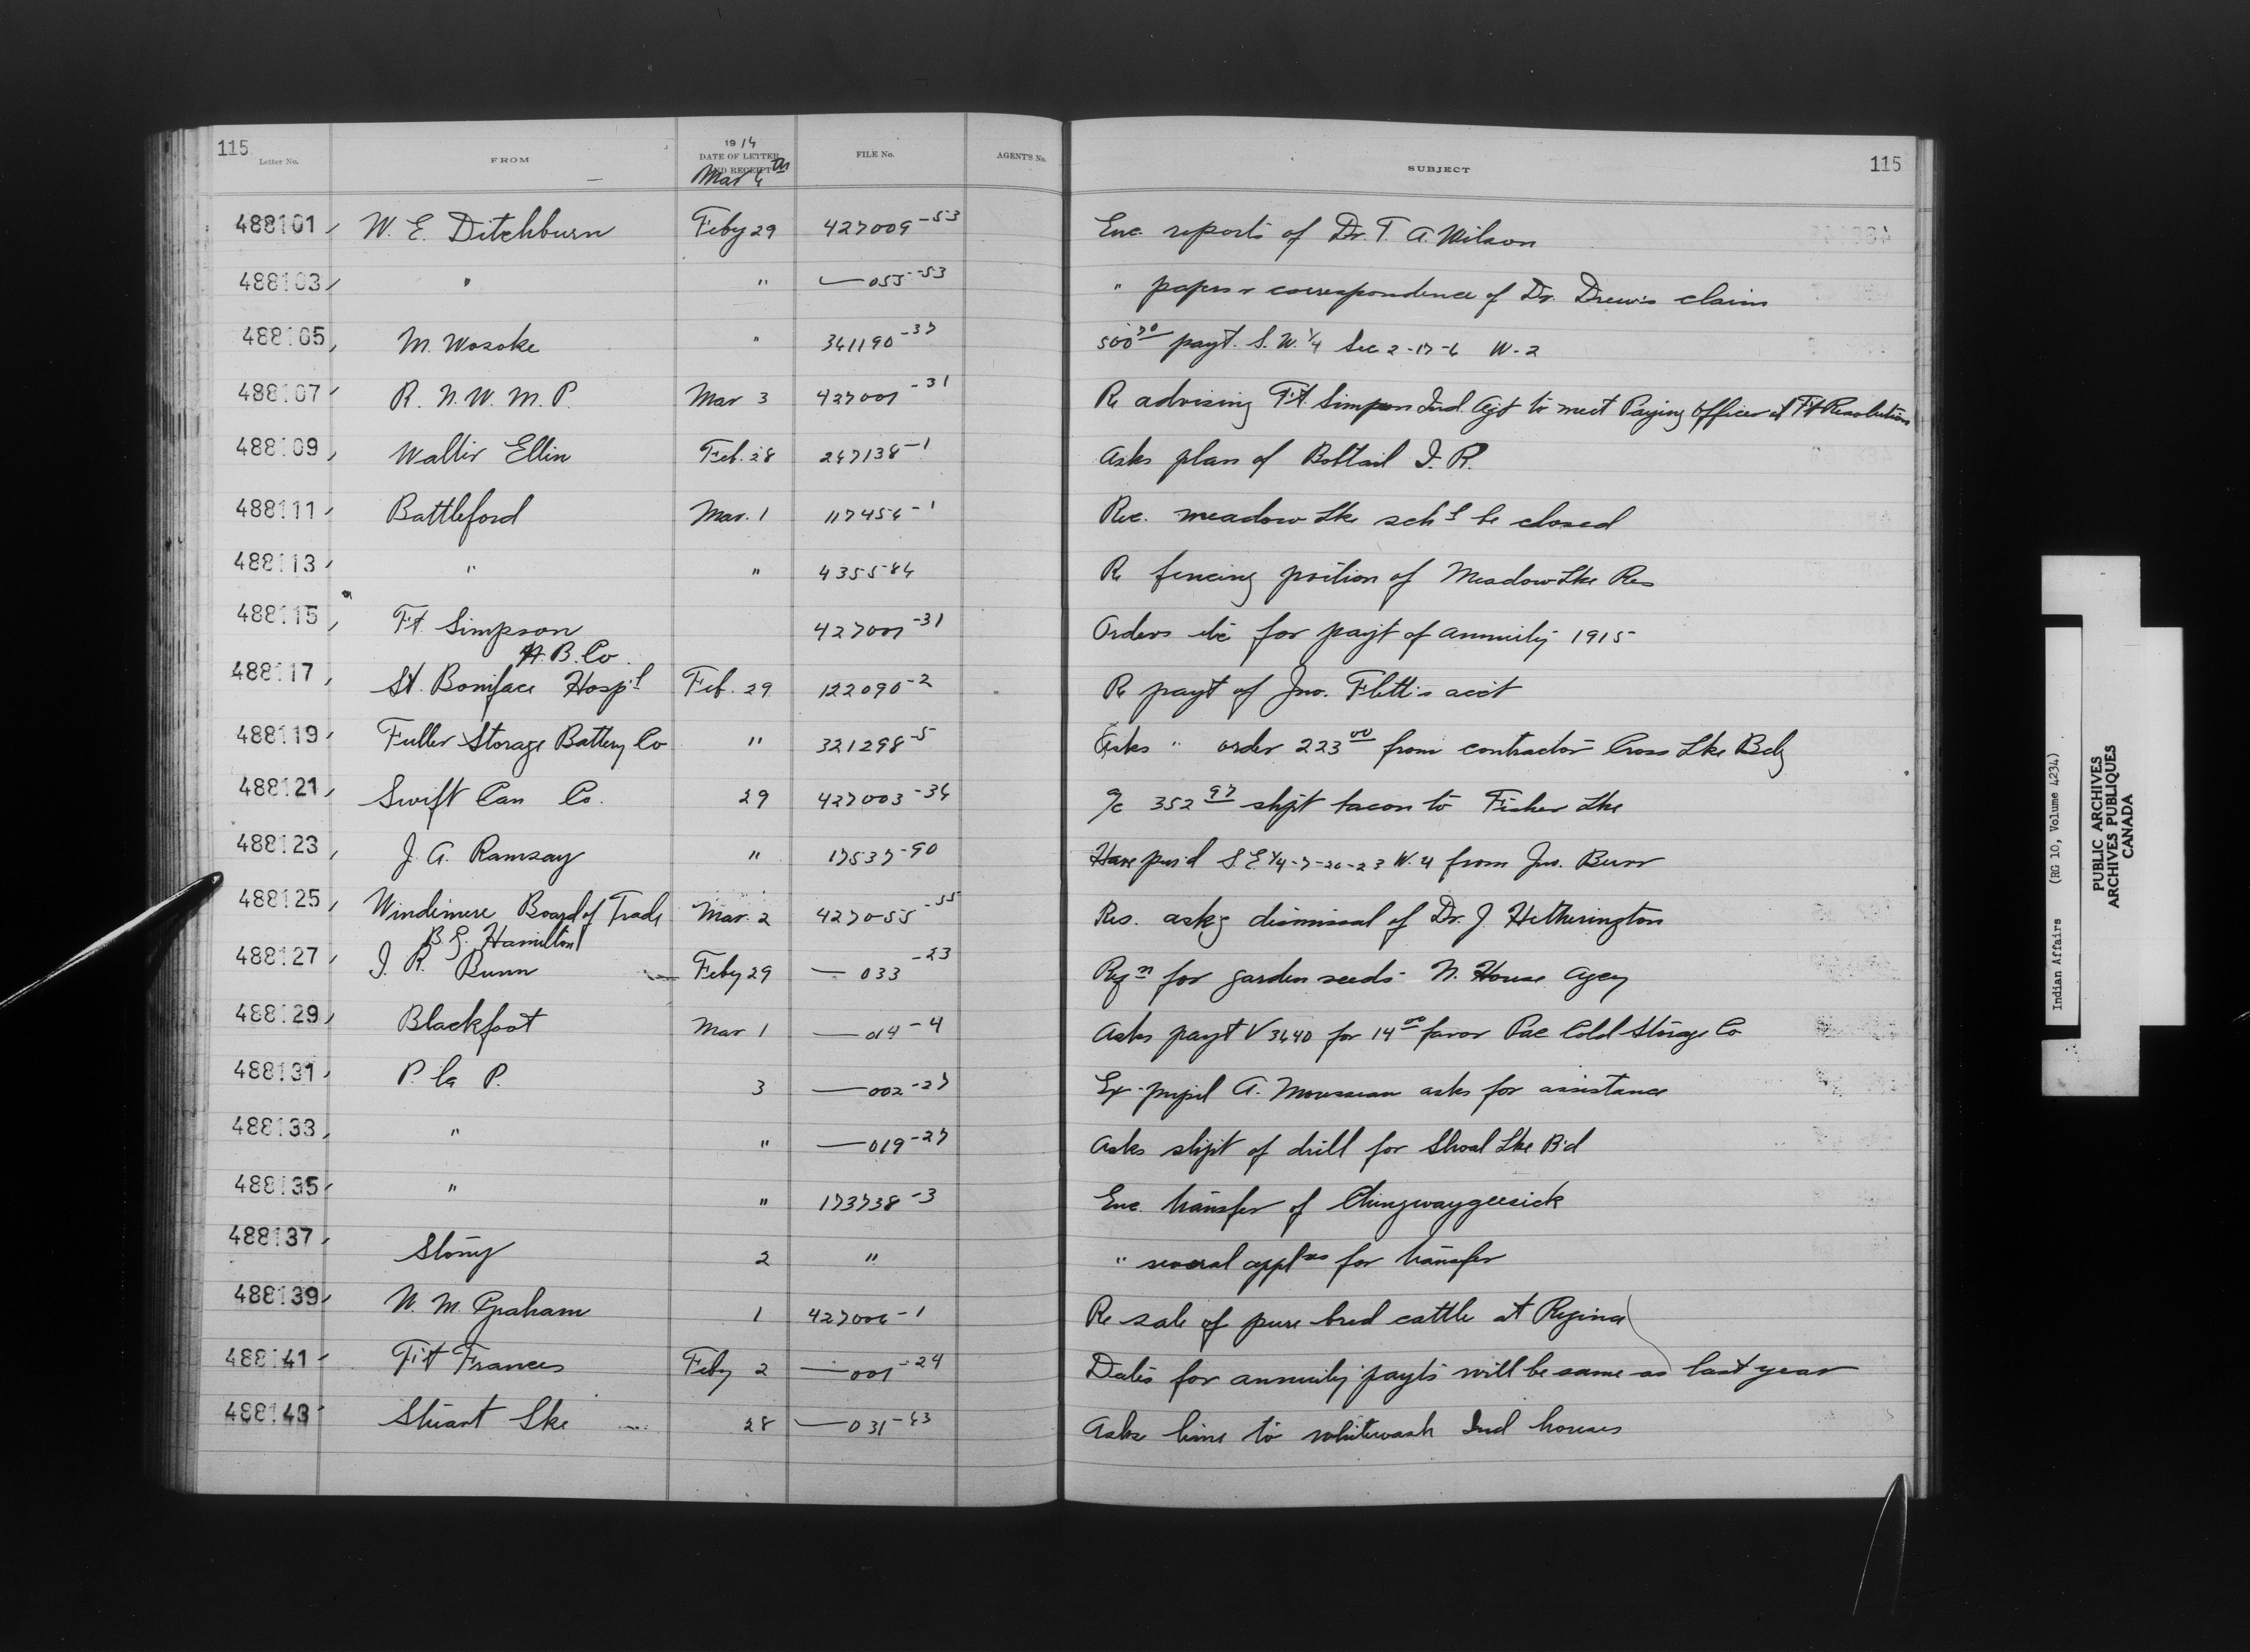 115
1914
Letter No. FROM DATE OF LETTER AND RECEIPT FILE No. AGENT'S No. SUBJECT 115
Mar 6th
488101 W. E. Ditchburn Feby 29 427009-53 Enc. reports of Dr. T. A. Wilson
488103 " " —055-53 " papers & correspondence of Dr. Drew's claim
488105 M. Wosoke " 361190-37 500 70 payt. S.W. 1/4 Sec 2-17-6 W-2
488107 R. N. W. M. P. Mar 3 427001-31 Re advising Ft. Simpson Ind. Agt to meet Paying Officer at Ft Resolution
488109 Walter Ellin Feb. 28 267138-1 Asks plan of Bobtail I. R.
488111 Battleford Mar. 1 117456-1 Rec. Meadow Lke schl be closed
488113 " " 435584 Re fencing portion of Meadow Lke Res
488115 Ft. Simpson 427001-31 Orders etc for payt of annuity 1915
H. B. Co.
488117 St. Boniface Hospl Feb. 29 122090-2 Re payt of Jno. Flett's acct
488119 Fuller Storage Battery Co " 321298-5 Asks " order 223 00 from contractor Cross Lke Bdg
488121 Swift Can Co. 29 427003-36 a/c 352 97 shpt bacon to Fisher Lke
488123 J. A. Ramsay " 17537-90 Have pur'd S.E. 1/4-7-26-23 W. 4 from Jno. Burr
488125 Windemere Board of Trade Mar. 2 427055-55 Res. askg dismissal of Dr. J. Hetherington
B. G. Hamilton
488127 J. R. Bunn Feby 29 —033-23 Reqn for garden seeds N. House Agcy
488129 Blackfoot Mar 1 —014-4 Asks payt V 3640 for 14 00 favor Pac Cold Storage Co
488131 P. la P. 3 —002-27 Ex-pupil A. Mousseau asks for assistance
488133 " " —019-27 Asks shpt of drill for Shoal Lke B'd
488135 " " 173738-3 Enc. transfer of Chingwaygeesick
488137 Stony 2 " " several applns for transfer
488139 W. M. Graham 1 427006-1 Re sale of pure bred cattle at Regina
488141 Ft Frances Feby 2 —001-24 Dates for annuity payts will be same as last year
488143 Stuart Lke 28 —031-63 Asks lime to whitewash Ind houses
Indian Affairs (RG 10, Volume 4234)
PUBLIC ARCHIVES
ARCHIVES PUBLIQUES
CANADA